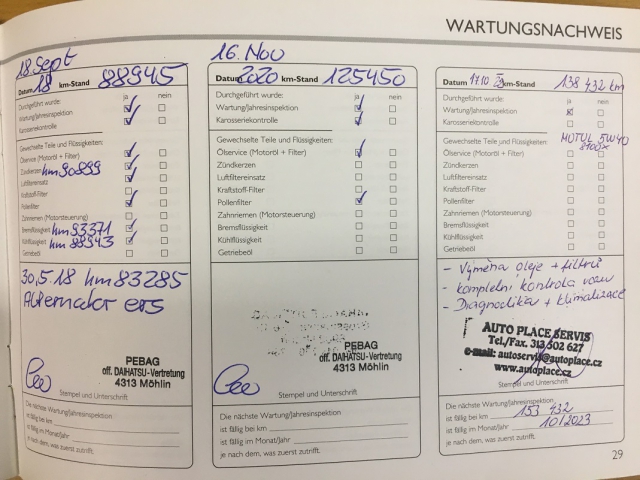 WARTUNGSNACHWEIS
18. Sept
Datum 18 km-Stand 88945
Durchgeführt wurde: ja nein
Wartung/Jahresinspektion
Karosseriekontrolle
Gewechselte Teile und Flüssigkeiten:
Ölservice (Motoröl + Filter)
Zündkerzen km 90899
Luftfiltereinsatz
Kraftstoff-Filter
Pollenfilter
Zahnriemen (Motorsteuerung)
Bremsflüssigkeit km 83371
Kühlflüssigkeit km 88943
Getriebeöl
30.5.18 km 83285
Alternator ers
PEBAG
off. DAIHATSU-Vertretung
4313 Möhlin
Stempel und Unterschrift
Die nächste Wartung/Jahresinspektion
ist fällig bei km
ist fällig im Monat/Jahr
je nach dem, was zuerst zutrifft.
16. Nov
Datum 2020 km-Stand 125450
Durchgeführt wurde: ja nein
Wartung/Jahresinspektion
Karosseriekontrolle
Gewechselte Teile und Flüssigkeiten:
Ölservice (Motoröl + Filter)
Zündkerzen
Luftfiltereinsatz
Kraftstoff-Filter
Pollenfilter
Zahnriemen (Motorsteuerung)
Bremsflüssigkeit
Kühlflüssigkeit
Getriebeöl
PEBAG
off. DAIHATSU-Vertretung
4313 Möhlin
Stempel und Unterschrift
Die nächste Wartung/Jahresinspektion
ist fällig bei km
ist fällig im Monat/Jahr
je nach dem, was zuerst zutrifft.
Datum 17.10 km-Stand 138 432 km
Durchgeführt wurde: ja nein
Wartung/Jahresinspektion
Karosseriekontrolle
Gewechselte Teile und Flüssigkeiten: MOTUL 5W40
Ölservice (Motoröl + Filter) 8100X
Zündkerzen
Luftfiltereinsatz
Kraftstoff-Filter
Pollenfilter
Zahnriemen (Motorsteuerung)
Bremsflüssigkeit
Kühlflüssigkeit
Getriebeöl
- Výměna oleje + filtrů
- kompletní kontrola vozu
- Diagnostika + klimatizace
AUTO PLACE SERVIS
Tel./Fax. 313 502 627
e-mail: autoservis@autoplace.cz
www.autoplace.cz
Stempel und Unterschrift
Die nächste Wartung/Jahresinspektion
ist fällig bei km 153 432
ist fällig im Monat/Jahr 10/2023
je nach dem, was zuerst zutrifft.
29